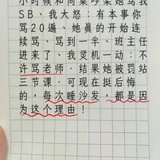 小时候和同桌吵架她骂我
SB，我大怒：有本事你
骂20遍，她真的开始连
续骂，骂到一半，班主任
进来了，我灵机一动：不
许骂老师，结果她被罚站
三节课，可现在挺后悔
的，每次睡沙发，都是因
为这个理由！